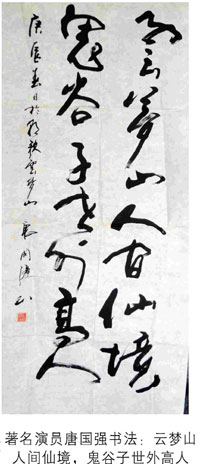 云梦山人间仙境
鬼谷子世外高人
庚辰春日於朝歌雲梦山 唐国强书
著名演员唐国强书法：云梦山
人间仙境，鬼谷子世外高人